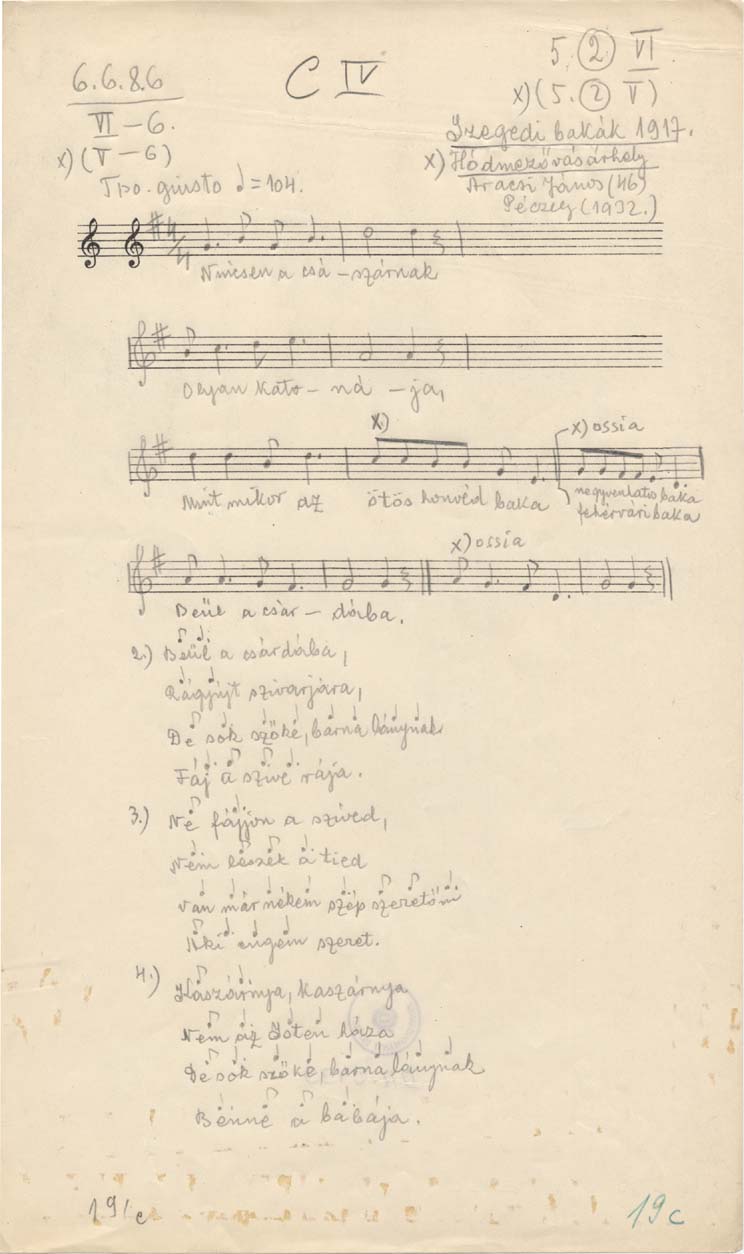 6.6.8.6
VI – 6.
x) (V – 6)
C IV
5. 2 VI.
x) (5. 2 V)
Szegedi bakák 1917.
x) Hódmezővásárhely
Aracsi János (46)
Péczely (1932.)
Tpo. giusto ♩ = 104.
Nincsen a csá – szárnak
Olyan kato – ná – ja,
x.)
x) ossia
Mint mikor az ötös honvéd baka
negyvenhatos baka
fehérvári baka
x) ossia
Beül a csár – dába.
2.) Beül a csárdába,
Rágyújt szivarjára,
De sok szőke, barna lánynak
Fáj a szive rája.
3.) Ne fájjon a szíved,
Nem leszek a tied
Van már nékem szép szeretőm
Aki engem szeret.
4.) Kaszárnya, kaszárnya
Nem az Isten háza
De sok szőke, barna lánynak
Benne a babája.
19/c
19c